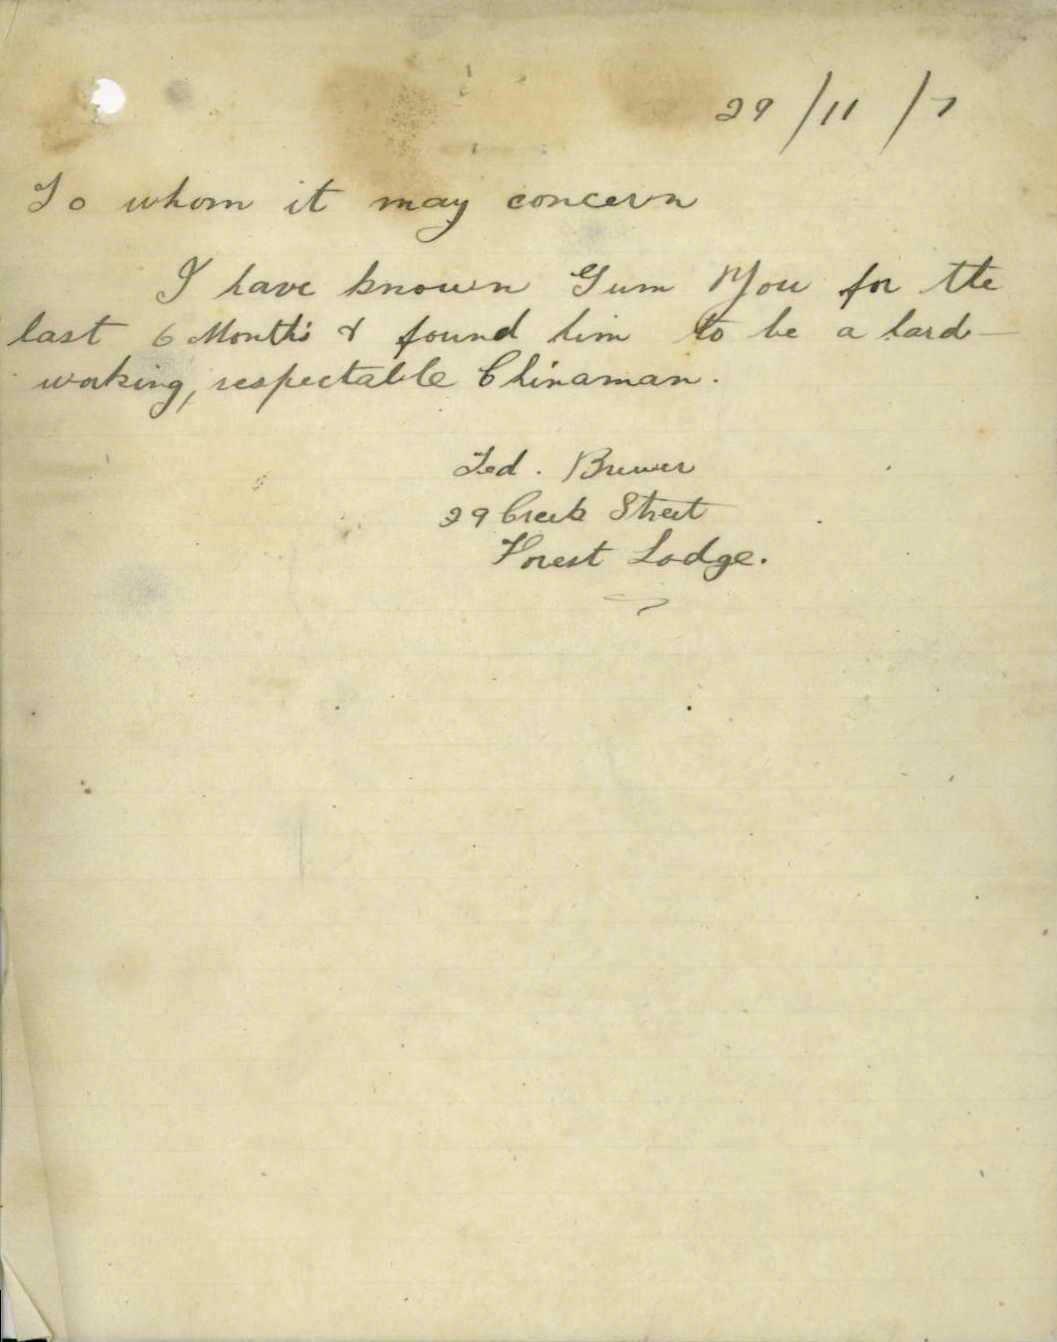 29/11/7
To whom it may concern
I have known Gum You for the
last 6 Months & found him to be a hard-
working, respectable Chinaman.
Ted. Brewer
29 Creek Street
Forest Lodge.